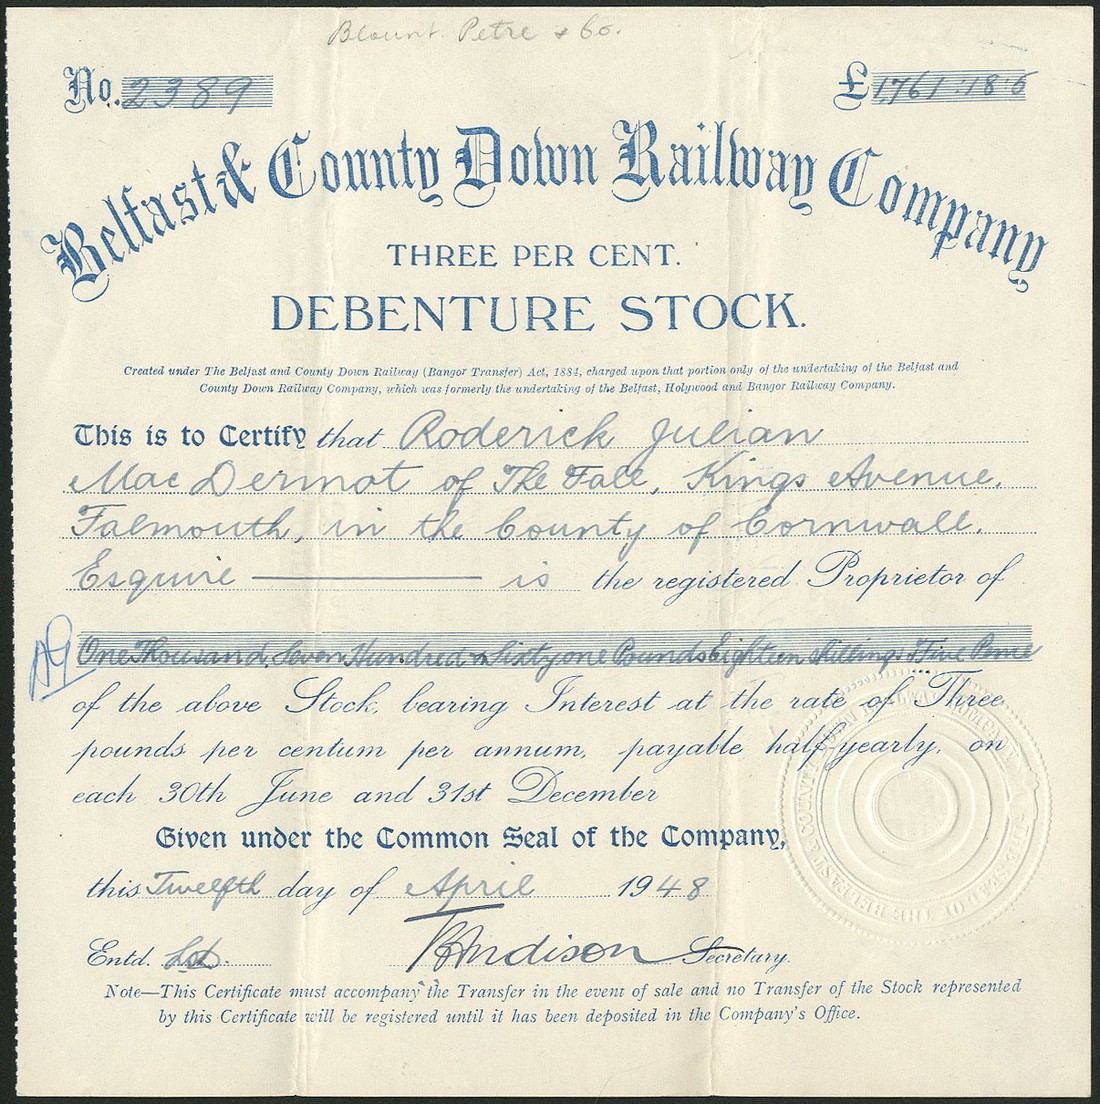 Blount. Petre & Co.
No. 2389 £1,761:18:5
Belfast & County Down Railway Company
THREE PER CENT.
DEBENTURE STOCK.
Created under The Belfast and County Down Railway (Bangor Transfer) Act, 1884, charged upon that portion only of the undertaking of the Belfast and
County Down Railway Company, which was formerly the undertaking of the Belfast, Holywood and Bangor Railway Company.
This is to Certify that Roderick Julian
MacDermot of The Fall, Kings Avenue,
Falmouth, in the County of Cornwall,
Esquire is the registered Proprietor of
One Thousand, Seven Hundred & Sixty one Pounds Eighteen Shillings & Five Pence
of the above Stock, bearing Interest at the rate of Three
pounds per centum per annum, payable half-yearly, on
each 30th June and 31st December
Given under the Common Seal of the Company,
this Twelfth day of April 1948
Entd. Secretary.
Note—This Certificate must accompany the Transfer in the event of sale and no Transfer of the Stock represented
by this Certificate will be registered until it has been deposited in the Company's Office.